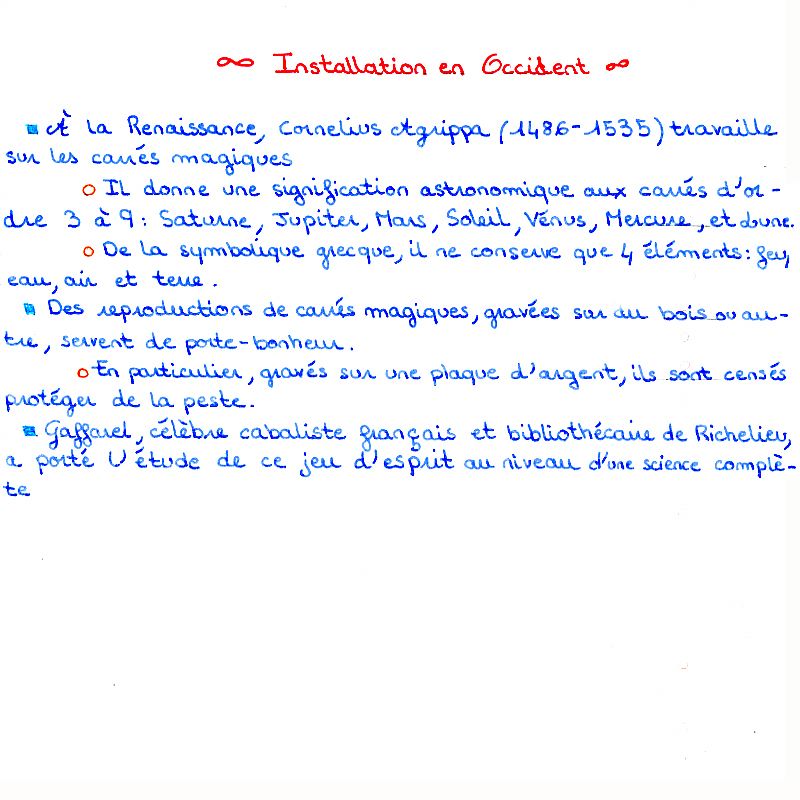 ∞ Installation en Occident ∞
■ À la Renaissance, Cornelius Agrippa (1486-1535) travaille
sur les carrés magiques
○ Il donne une signification astronomique aux carrés d'or-
dre 3 à 9 : Saturne, Jupiter, Mars, Soleil, Vénus, Mercure, et Lune.
○ De la symbolique grecque, il ne conserve que 4 éléments : feu,
eau, air et terre.
■ Des reproductions de carrés magiques, gravées sur du bois ou au-
tre, servent de porte-bonheur.
○ En particulier, gravés sur une plaque d'argent, ils sont censés
protéger de la peste.
■ Gaffarel, célèbre cabaliste français et bibliothécaire de Richelieu,
a porté l'étude de ce jeu d'esprit au niveau d'une science complè-
te